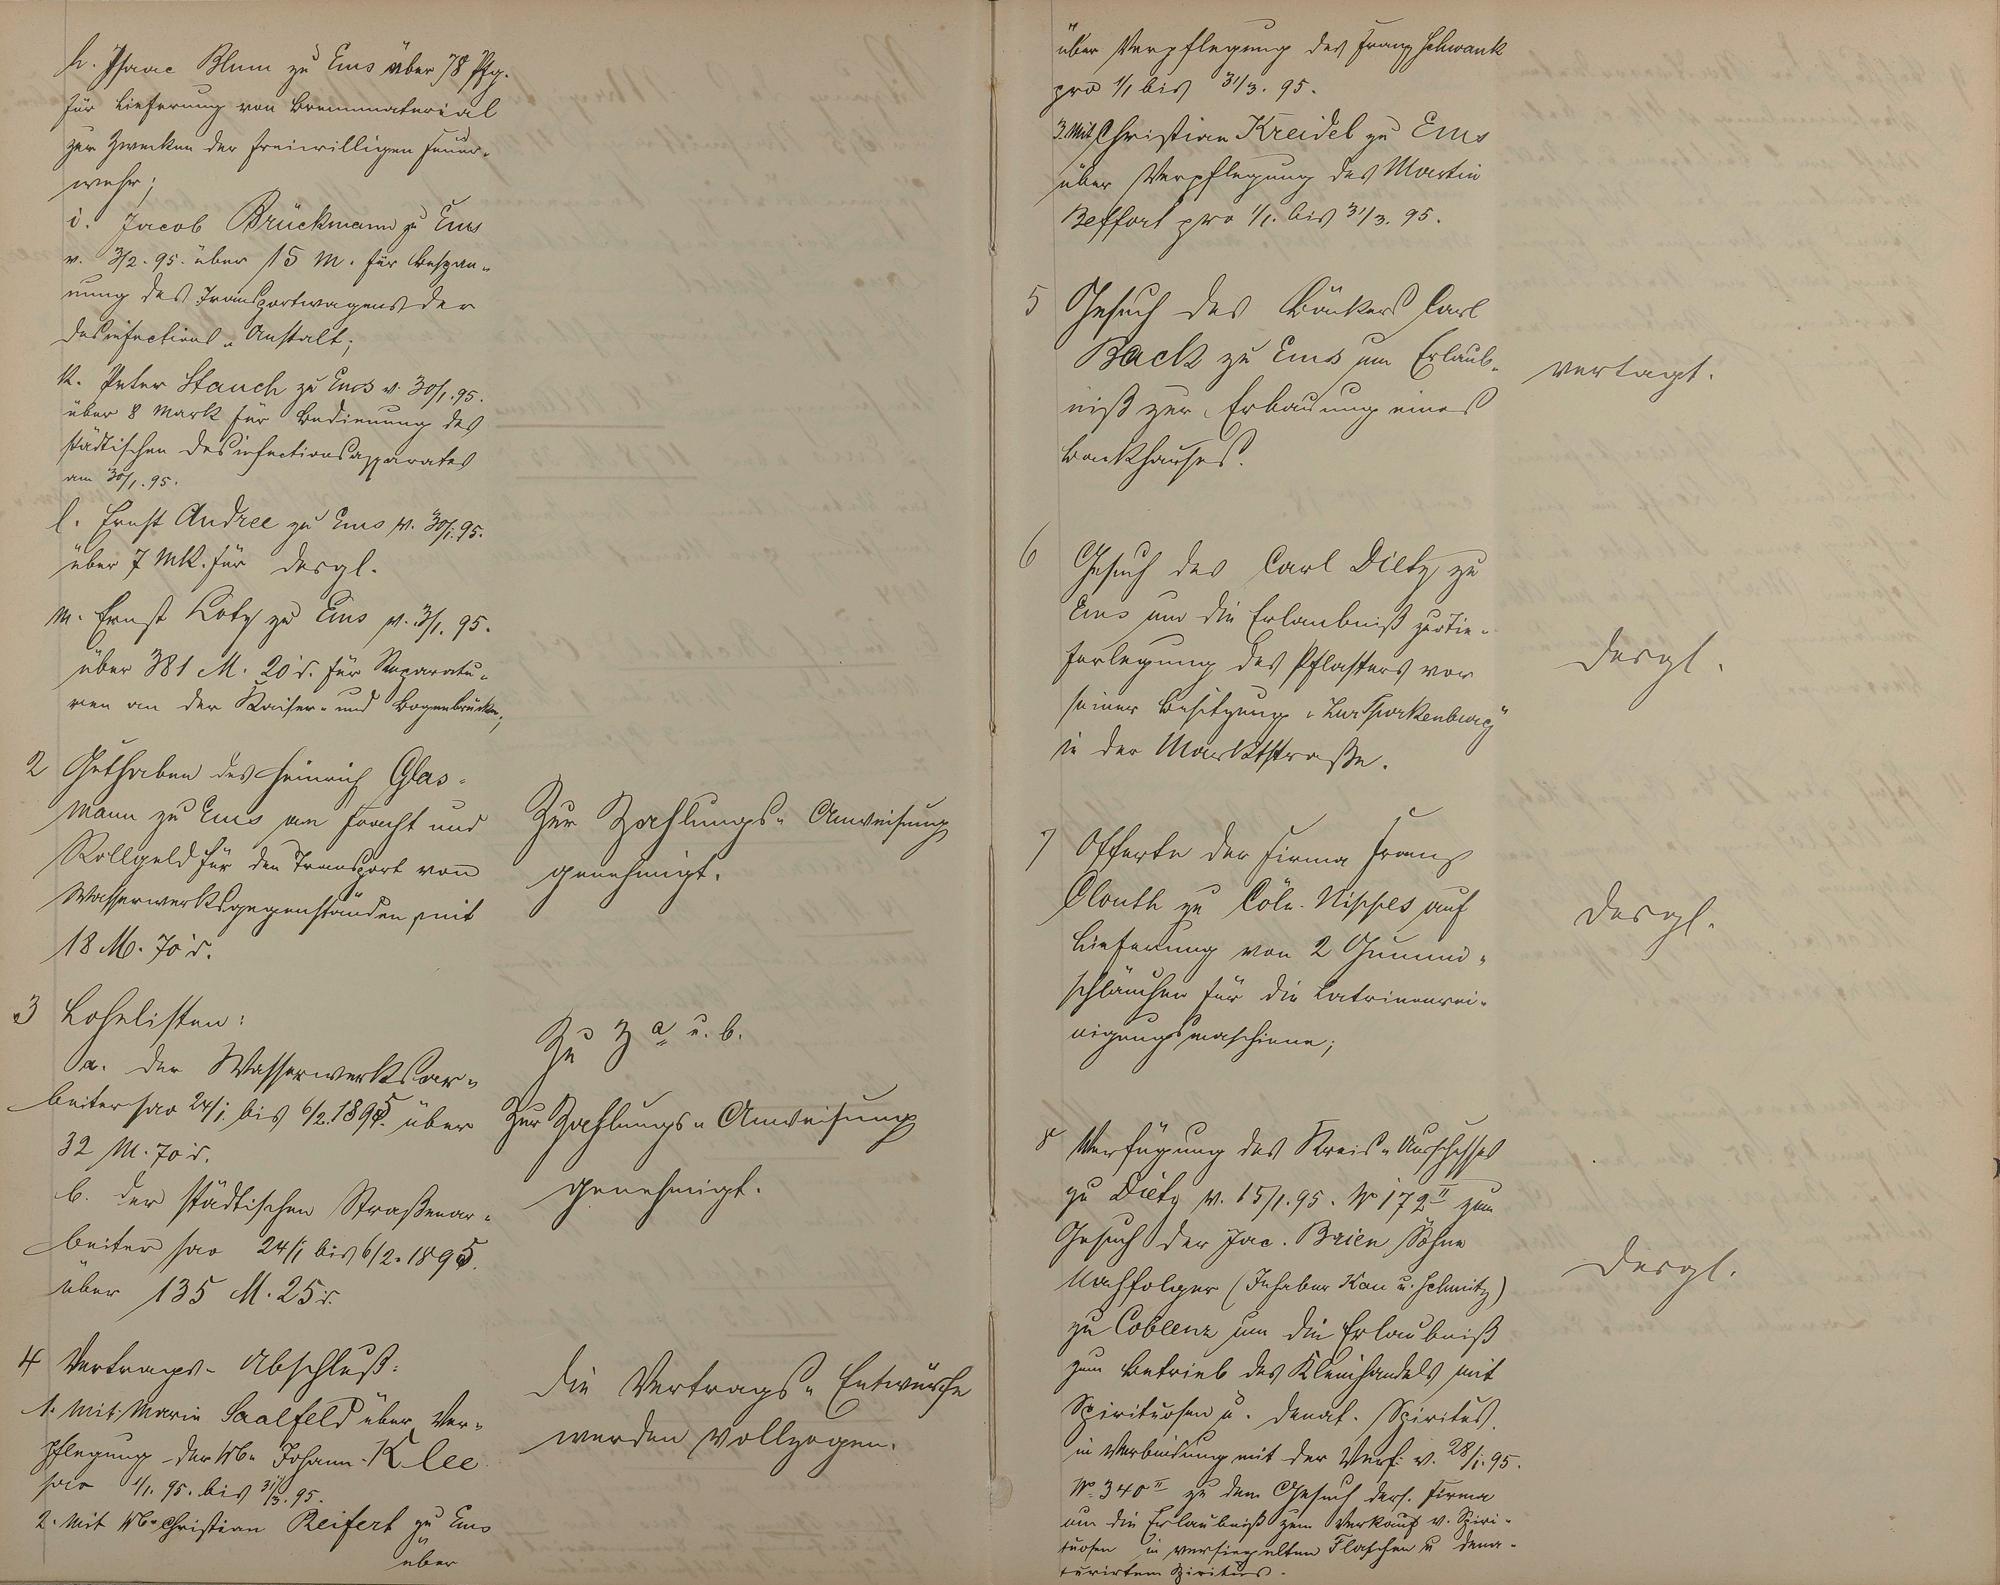 h. Isaac Blum zu Ems über 78 Pfg.
für Lieferung von Brennmaterial
zu Zwecken der freiwilligen Feuer-
wehr;
i. Jacob Brückmann zu Ems
v. 3/2. 95. über 15 M. für Bespan-
nung des Transportwagens der
Desinfections-Anstalt;
k. Peter Stauch zu Ems v. 30/1. 95.
über 8 Mark für Bedienung des
städtischen Desinfectionsapparates
am 30/1. 95.
l. Ernst Andree zu Ems v. 30/1. 95.
über 7 Mk. für desgl.
m. Ernst Lotz zu Ems v. 3/1. 95.
über 381 M. 20 d. für Reparatu-
ren an der Kaiser- und Bogenbrücke;
2 Guthaben des Heinrich Glas-
mann zu Ems an Fracht und
Rollgeld für den Transport von
Wasserwerksgegenständen mit
18 M. 70 d.
Zur Zahlungs-Anweisung
genehmigt.
3 Lohnlisten:
a. der Wasserwerksar-
beiter pro 24/1 bis 6/2. 1895. über
32 M. 70 d.
b. der städtischen Straßenar-
beiter pro 24/1 bis 6/2. 1895.
über 135 M. 25 d.
Zu 3 a u. b.
Zur Zahlungs-Anweisung
genehmigt.
4 Vertrags-Abschluß:
1. Mit Marie Saalfeld über Ver-
pflegung der Wb. Johann Klee
pro 1/1. 95. bis 31/3. 95.
2. Mit Wb. Christian Reifert zu Ems
über
Die Vertrags-Entwürfe
werden vollzogen.
über Verpflegung des Franz Schwank
pro 1/1 bis 31/3. 95.
3. Mit Christian Kreidel zu Ems
über Verpflegung des Martin
Beffort pro 1/1. bis 31/3. 95.
5 Gesuch des Bäckers Carl
Back zu Ems um Erlaub-
niß zur Erbauung eines
Backhauses.
vertagt.
6 Gesuch des Carl Dietz zu
Ems um die Erlaubniß zur Tie-
ferlegung des Pflasters vor
seiner Besitzung „Zur Sporkenburg"
in der Marktstraße.
desgl.
7 Offerte der Firma Franz
Clouth zu Cöln-Nippes auf
Lieferung von 2 Gummi-
schläuchen für die Latrinenrei-
nigungsmaschiene;
desgl.
8 Verfügung des Kreis-Ausschusses
zu Dietz v. 15/1. 95. No 172 II zum
Gesuch der Jac. Brien Söhne
Nachfolger (Inhaber Kau u. Schmitz)
zu Coblenz um die Erlaubniß
zum Betrieb des Kleinhandels mit
Spirituosen u. denat. Spiritus.
in Verbindung mit der Verf. v. 28/1. 95.
No. 340 II zu dem Gesuch ders. Firma
um die Erlaubniß zum Verkauf v. Spiri-
tuosen in versiegelten Flaschen u dena-
turirtem Spiritus.
desgl.